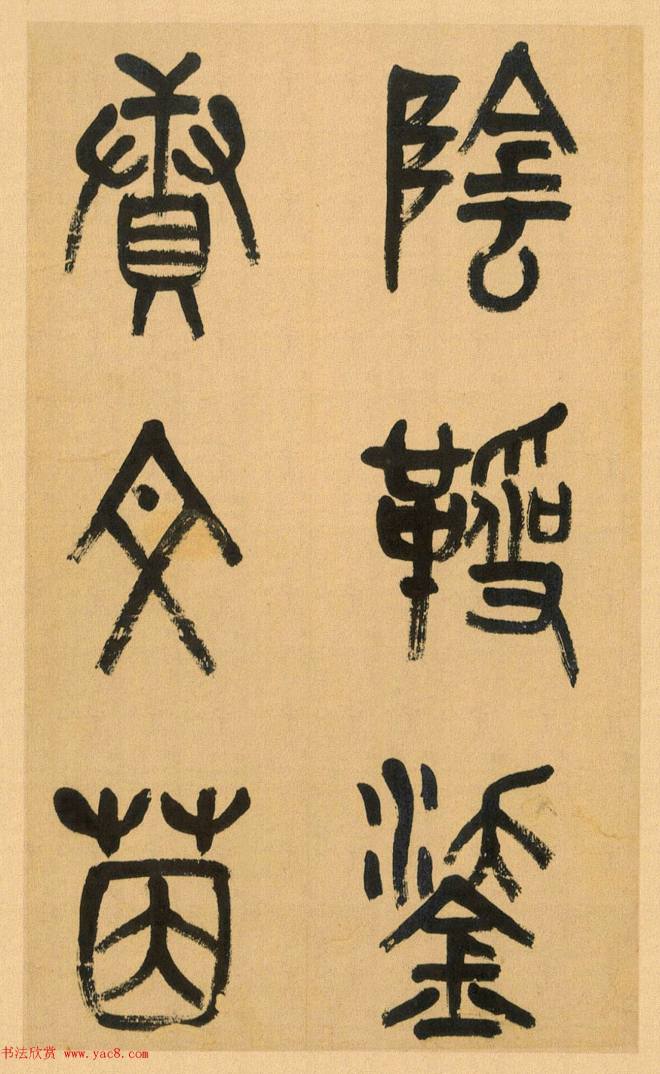 陰靷鋈
賡文茵
书法欣赏 www.yac8.com